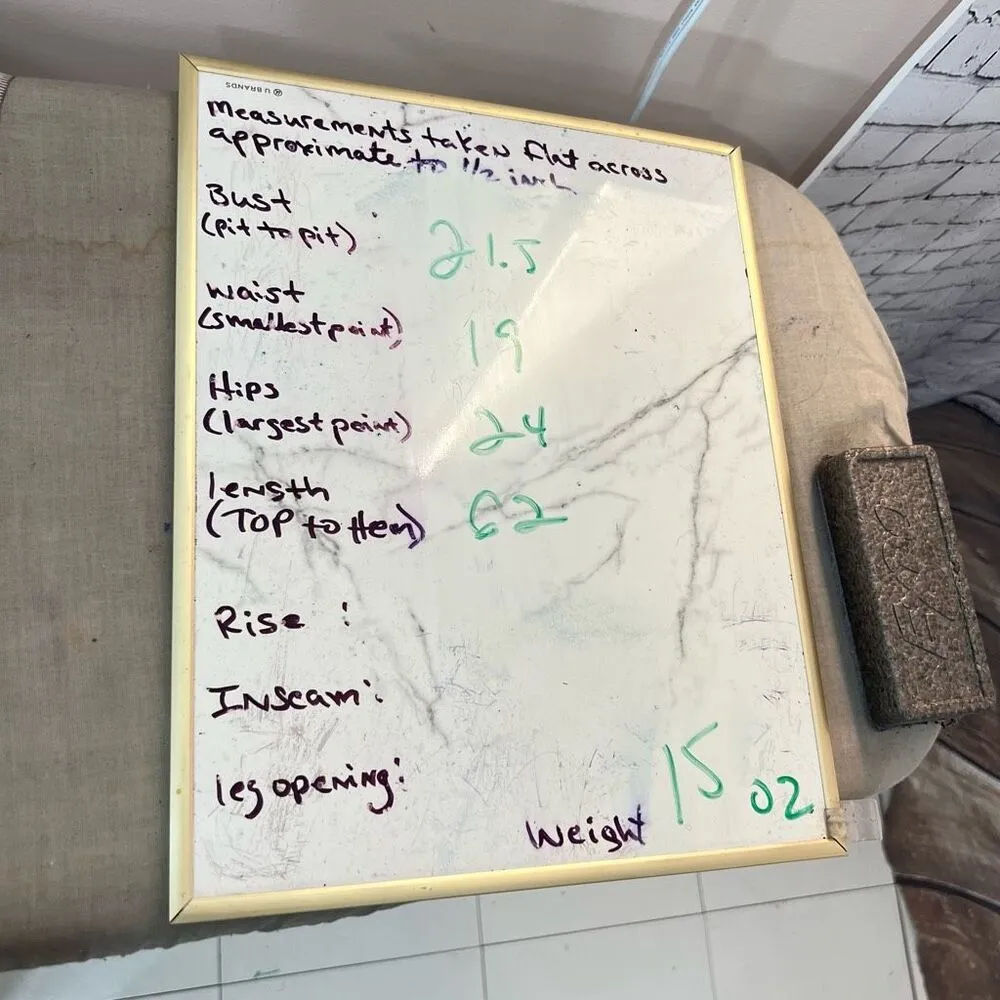 U BRANDS
Measurements taken flat across
approximate to 1/2 inch
Bust
(pit to pit)
21.5
waist
(smallest point)
19
Hips
(largest point)
24
length
(TOP to Hem)
62
Rise :
Inseam:
leg opening:
15 oz
Weight